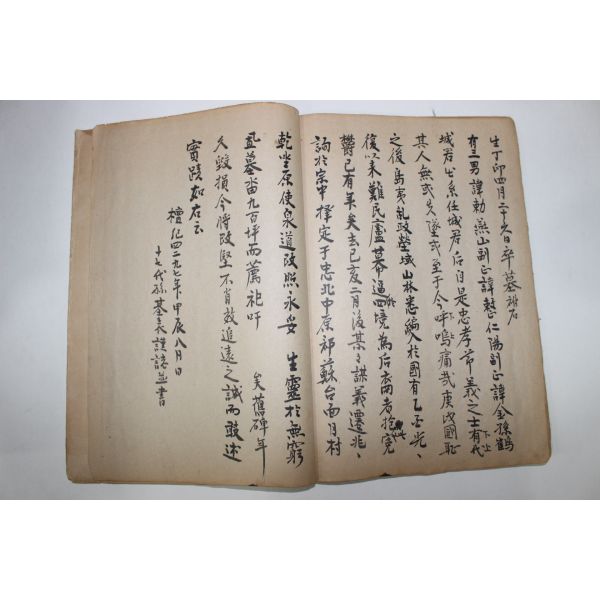 生丁卯四月二十九日卒墓祔右
有三男諱勅燕山副正諱整仁陽副正諱金孫鶴
城君出系任城君后自是忠孝節義之士有代
其人無或失墜或至于今呼嗚痛哉庚戌國恥
之後島夷亂政塋域山林悉編入於國有乙酉光
復以來難民廬幕逼四境為后裔者抱寃
欝已有年矣去己亥二月後某某謀義遷兆
詢於宗中擇定于忠北中原郡蘇台面月村
乾坐原使泉道改照永妥 生靈於無窮
且墓畓九百坪而薦祀吁 矣舊碑年
久毀損今時改竪不肖敢追遠之誠而敢述
實蹟如右云
檀紀四二九七年甲辰八月日
十七代孫基 謹識並書